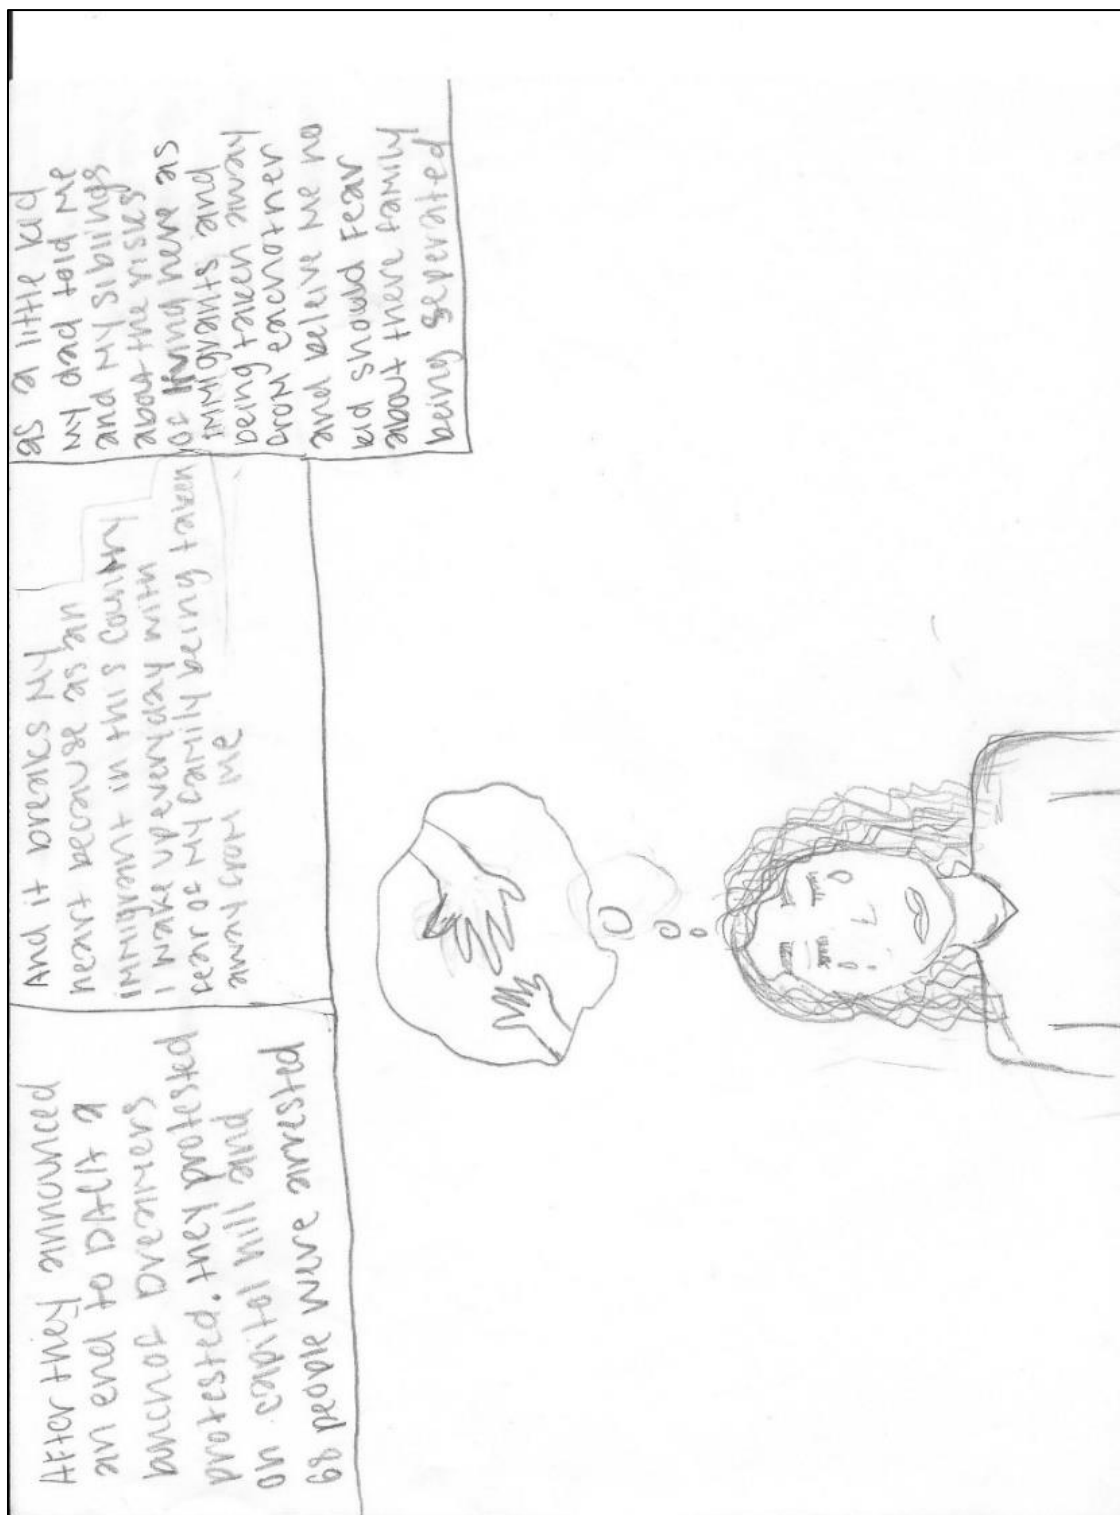 After they announced
an end to DACA a
bunch of Dreamers
protested. they protested
on capital hill and
68 people were arrested
And it breaks My
heart because as an
immigrant in this country
I wake up everyday with
fear of My family being taken
away from me
as a little kid
My dad told me
and My siblings
about the risks
of living here as
immigrants and
being taken away
from eachother
and beleive me no
kid should fear
about there family
being seperated